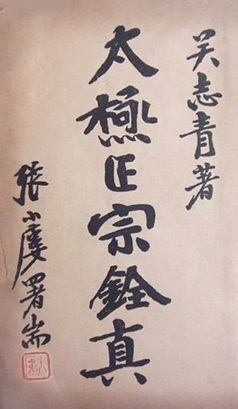 吴志青著
太極正宗銓真
張小廔署耑